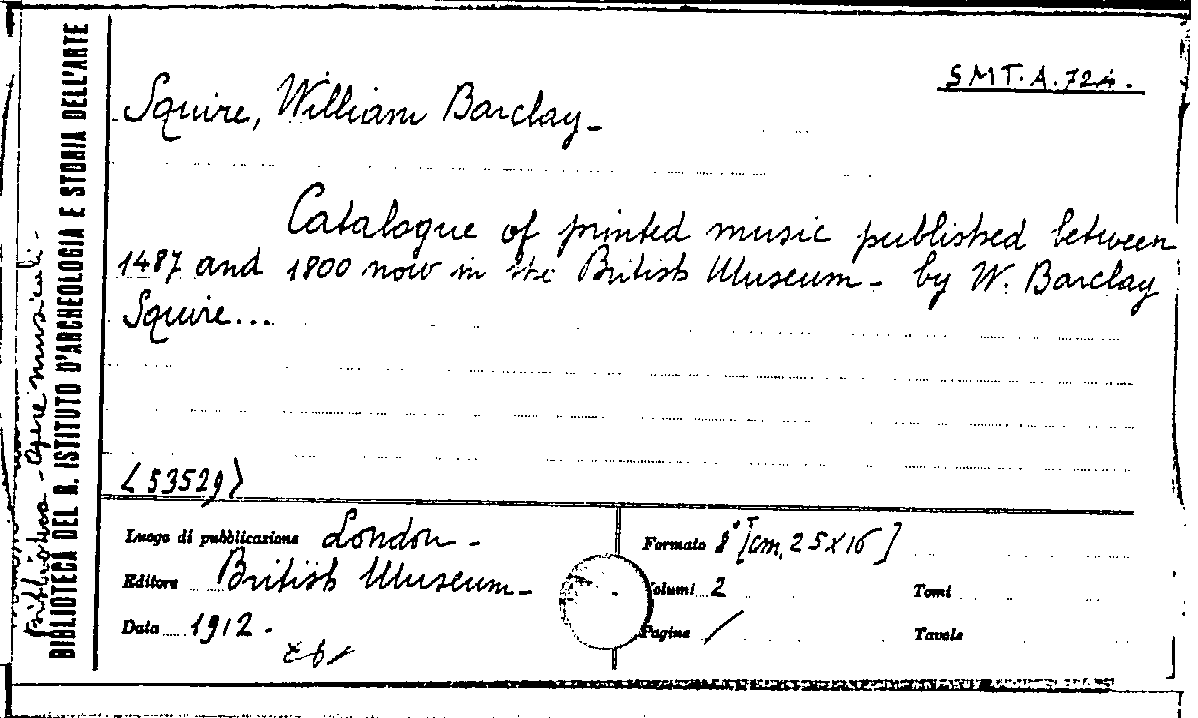 SMT.A.724.
Squire, William Barclay-
Catalogue of printed music published between
1487 and 1800 now in the British Museum - by W. Barclay
Squire...
<53529>
Luogo di pubblicazione London -
Editore British Museum -
Data 1912.
Formato 8° [cm, 25x16]
Volumi 2
Tomi
Pagine /
Tavole
BIBLIOTECA DEL R. ISTITUTO D'ARCHEOLOGIA E STORIA DELL'ARTE
- Opere musicali -